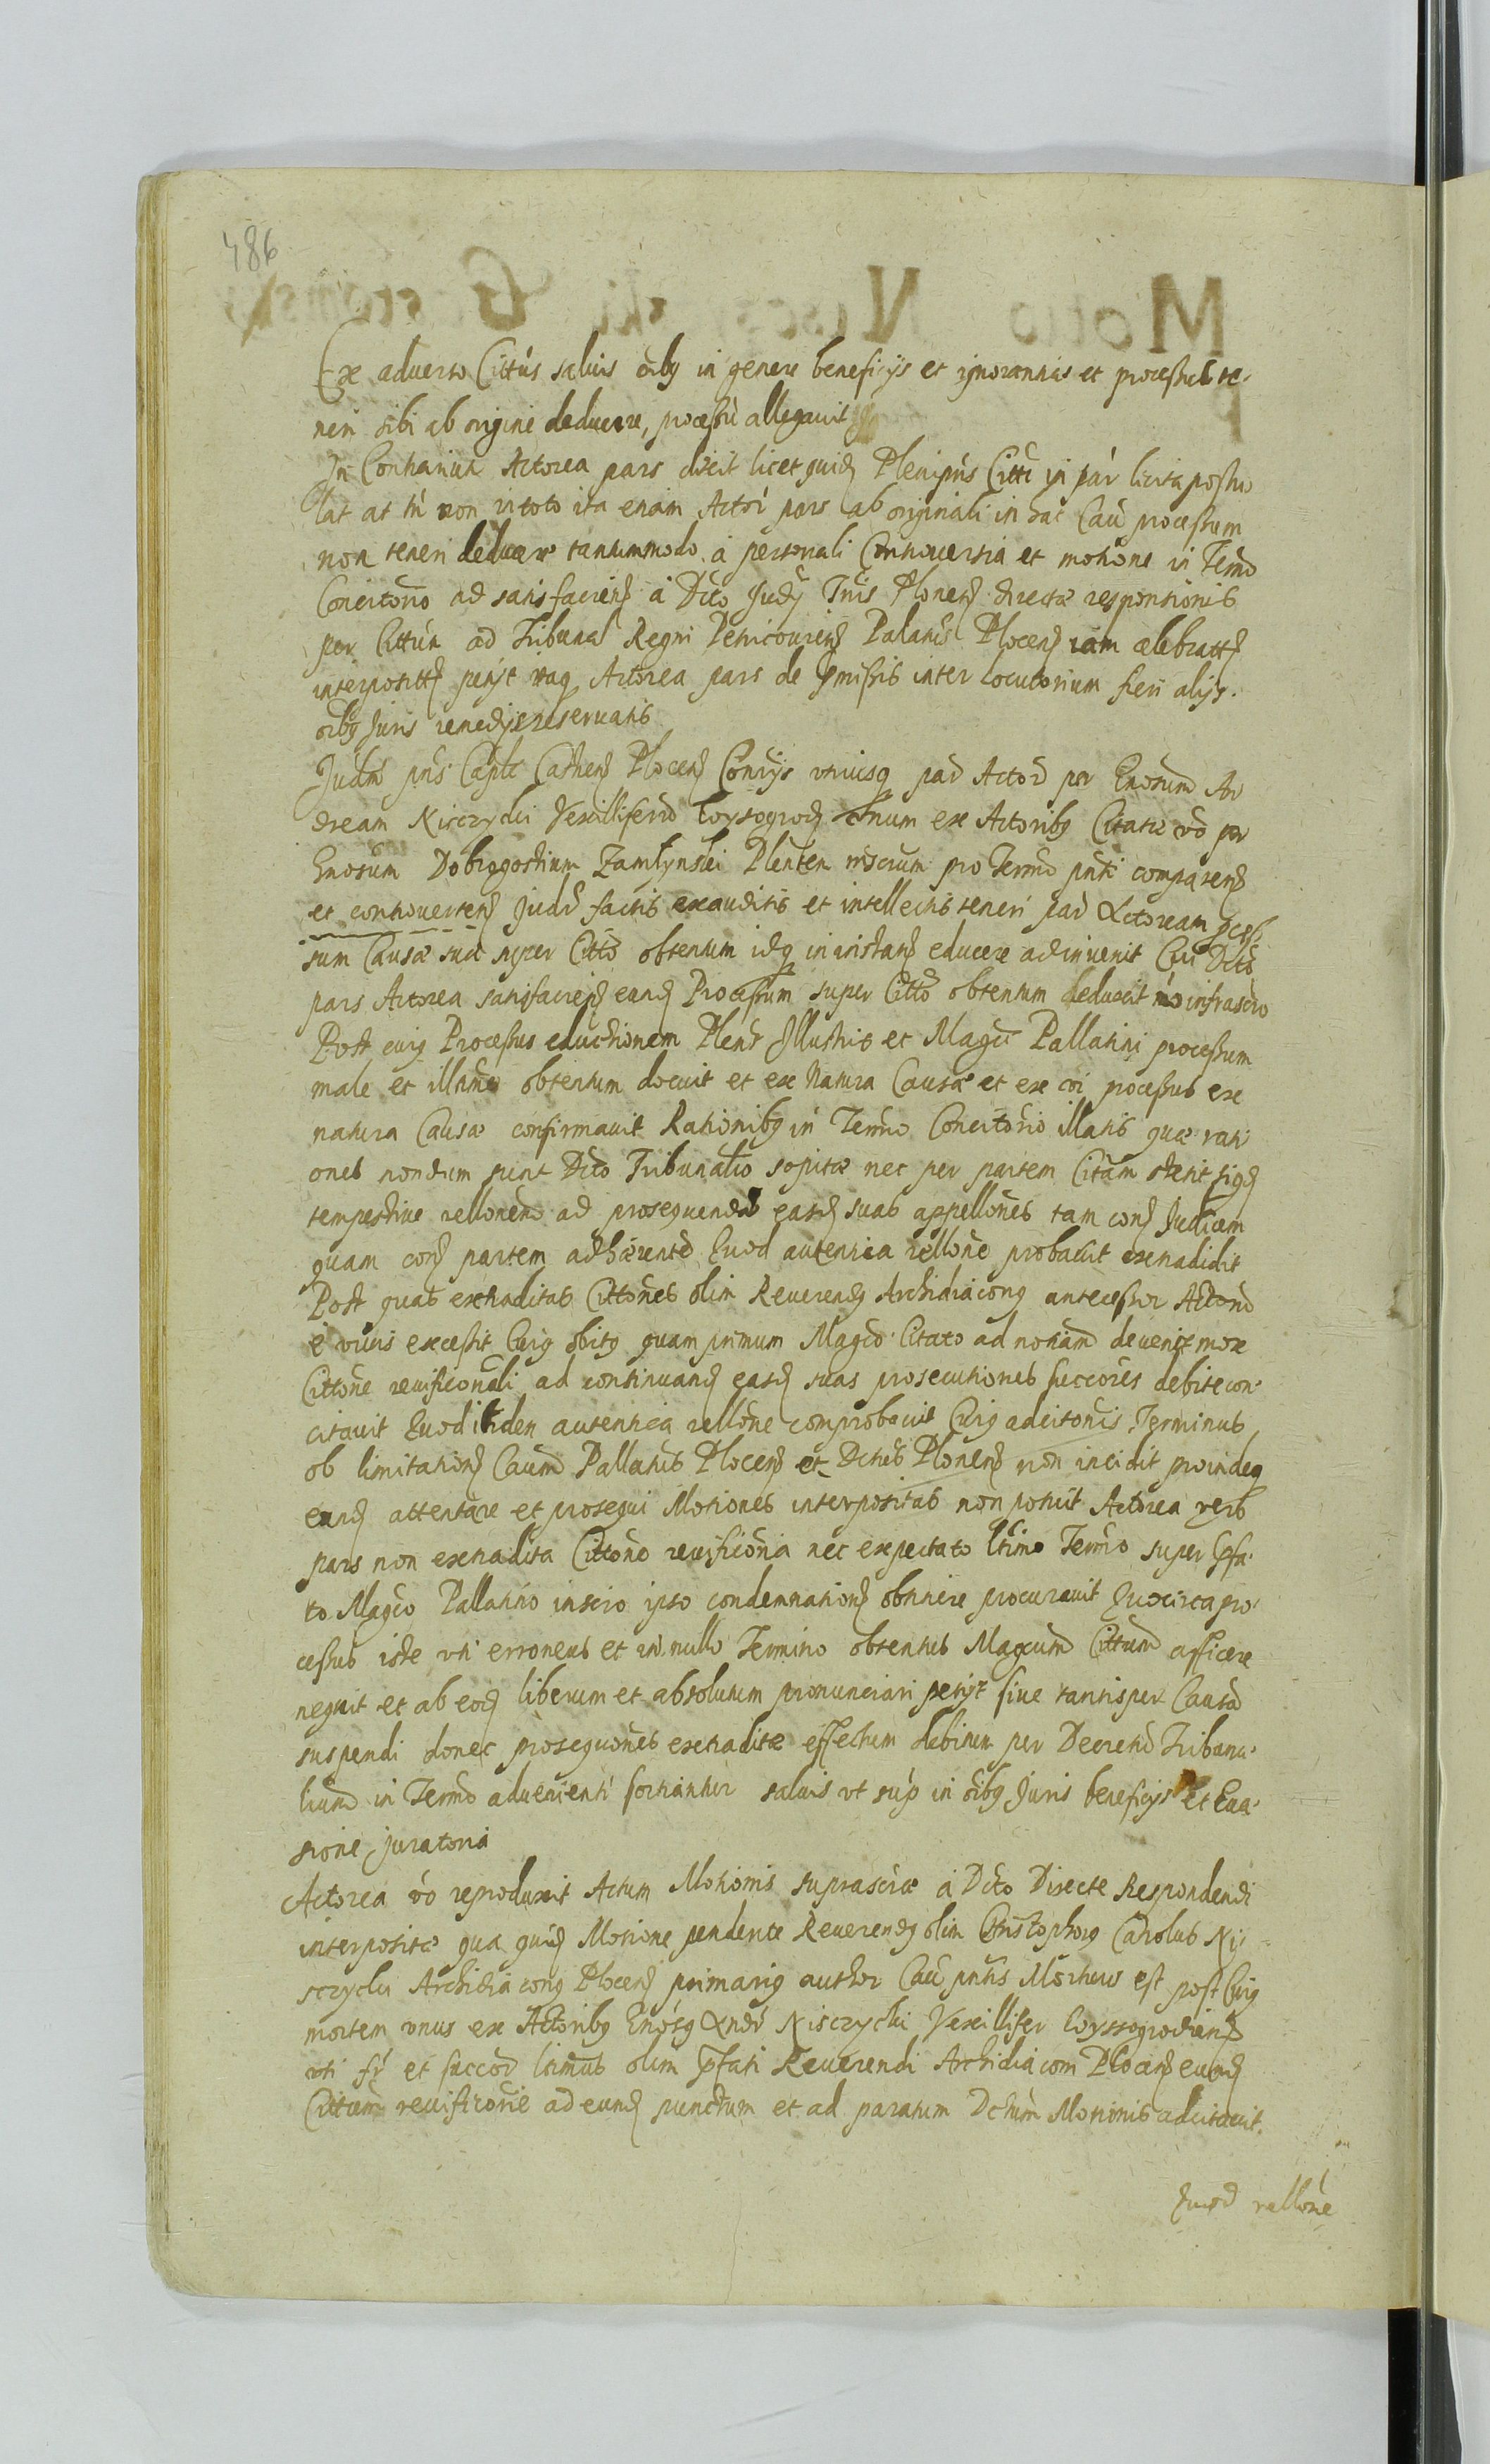 486
Ex aduerso Cittus saluis oibg in genere beneficijs et ignorantiis et processus te-
neri sibi ab origine deducere, processu allegauit
In Contrarium Actorea pars dixit licet quid Plenipns Citti in par licita postu
lat at tn non in toto ita enim Actor pars ab originali in hac Cau processum
non teneri deducere tantummodo a personali Controuersia et motione in Termo
Concitorio ad satisfaciend a Dcto Judij Tris Plonen directae responsionis
per Cittum ad Tribunal Regni Petricouien Palatus Plocen iam celebratt
interposittt petijt itaq Actorea pars de pmissis inter locutorium fieri alijs
oibg Juris remedijs reseruatis
Judm pns Caple Cathen Plocen Contijs vtriusq par Actor per Gnosum An
dream Nisczycki Vexilliferum Wyssogrod vnum ex Actoribg Citatae vo per
Gnosum Dobrogostium Zamtynski Plenten pro Termo pnti comparen
et controuerten Jud factis exauditis et intellectis teneri par Actoream pces
sum Causae suae super Citto obtentum idq in instan educere adinuenit Cui Dcto
pars Actorea satisfacien eund Processum super Citto obtentum deduxit mo infrascro
Post cuig Processus eductionem Plens Illustris et Magci Pallatini processum
male et illnme obtentum docuit et ex Natura Causae et ex processus ex
natura Causae confirmauit Rationibg in Termo Concitorio illatis quae rati
ones nondum sunt Dcto Tribunalio sopitae nec per partem Citam stetit siqd
tempestiue rellonem ad prosequendas easd suas appellones tam con Judicem
quam con partem adhaerente Quod autentica rellone probauit extradidit
Post quas extraditas Cittones olim Reuerendg Archidiacong antecessor Actorum
e viuis excessit Cuig obitg quam primum Magco Citato ad notiam deuenit mox
Cittone reuificonali ad continuand easd suas prosecutiones succores debite con-
citauit Quod itidem autentica rellone comprobauit Cuig adcitonis Terminus
ob limitation Caum Pallatus Plocen et Dctus Plonen non incidit proindeq
eand attentare et prosequi Motiones interpositas non potuit Actorea vero
pars non extradita Cittone reuificonia nec expectato ltimo Termo super pfa-
to Magco Pallatino inscio ipso condemnation obtinere procurauit Quocirca pro-
cessus iste vti erroneus et in nullo Termino obtentus Magcum Cittum afficere
nequit et ab eod liberum et absolutum pronunciari petijt siue tantisper Causa
suspendi donec prosequones extraditae effectum debitum per Decretum Tribuna-
lium in Termo aduenienti sortiantur saluis vt sup in oibg Juris beneficijs et Eua-
sione juratoria
Actorea vo reproduxit Actum Motionis suprascrae a Dcto Directe Respondendi
interpositae qua quid Motione pendente Reuerendg olim Christophorg Carolus Ni-
sczycki Archidiacong Plocen primarig author Cau pntis Mortuus est post Cuig
mortem vnus ex Actoribg Gnosg Andr Nisczycki Vexillifer Wyssogrodien
vti fr et succor ltimus olim pfati Reuerendi Archidiaconi Plocen eund
Cittum reuificonie ad eund punctum et ad paratum Dctum Motionis adcitauit.
Quod rellone